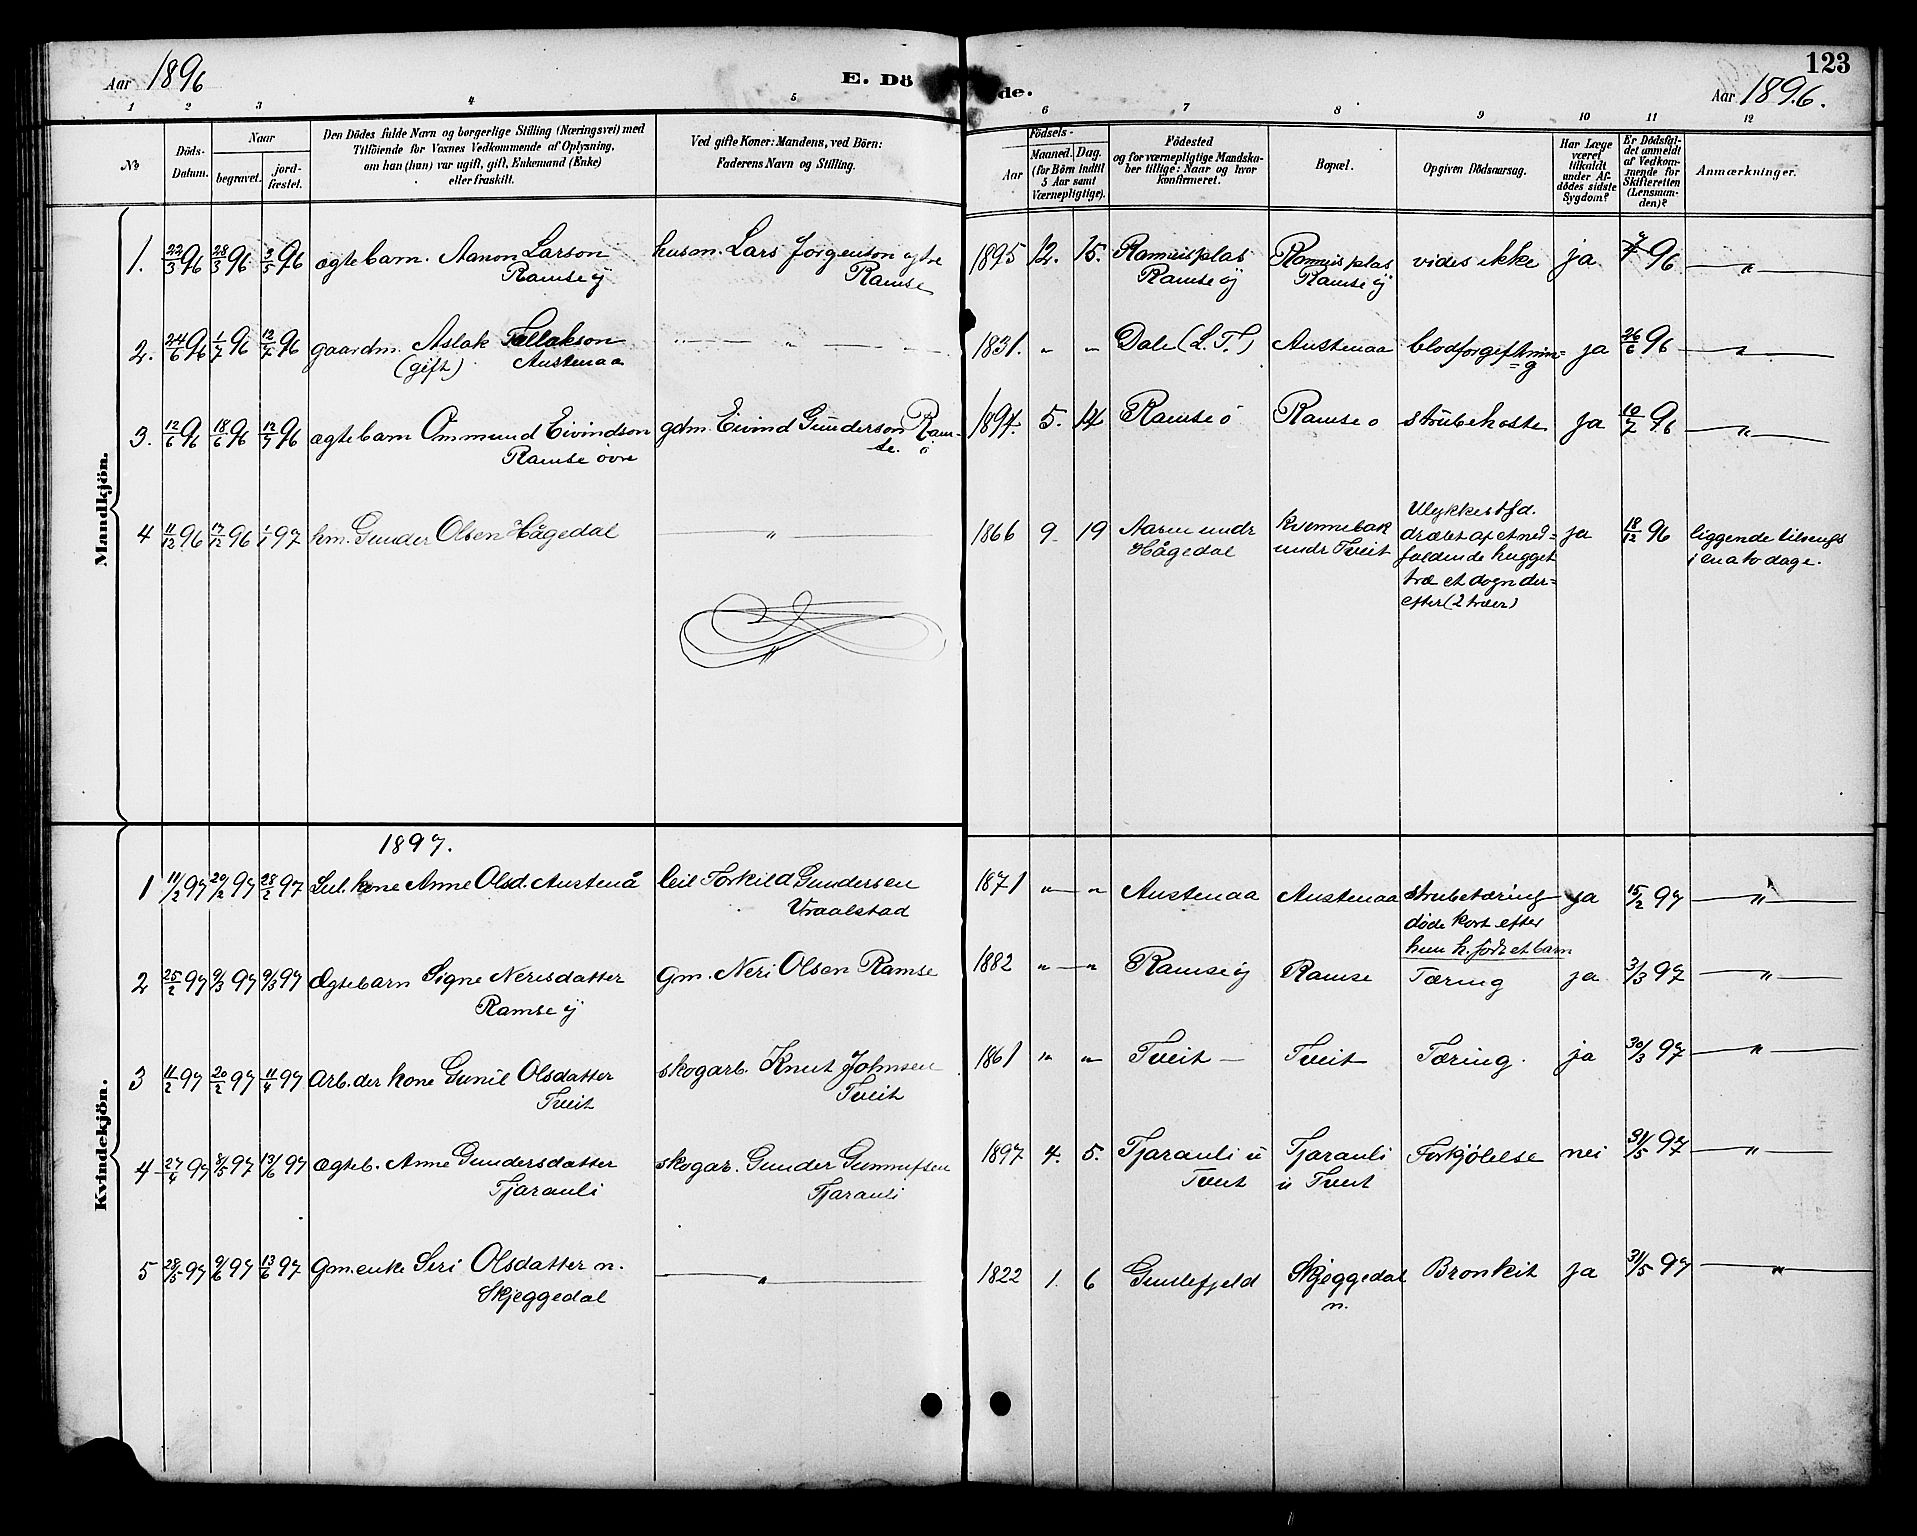 Aar 1896
E. Dö
de.
Aar 1896.
123
1 2 3 4 5 6 7 8 9 10 11 12
No
Döds-Datum.
Naar
begravet.
jord-fæstet.
Den Dödes fulde Navn og borgerlige Stilling (Næringsvei) med
Tilföiende for Voxnes Vedkommende af Oplysning,
om han (hun) var ugift, gift, Enkemand (Enke)
eller fraskilt.
Ved gifte Koner: Mandens, ved Börn:
Faderens Navn og Stilling.
Födsels-
Aar
Maaned. Dag.
(for Börn indtil
5 Aar samt
Værnepligtige).
Födested
og for værnepligtige Mandska-
ber tillige: Naar og hvor
konfirmeret.
Bopæl.
Opgiven Dödsaarsag.
Har Læge
været
tilkaldt
under Af-
dödes sidste
Sygdom?
Er Dödsfal-
det anmeldt
af Vedkom-
mende for
Skifteretten
(Lensman-
den)?
Anmærkninger.
Mandkjön.
1. 22/3 96 28/3 96 3/5 96 ægtebarn. Aanon Larson
Ramse ÿ
husm. Lars Jørgenson ytre
Ramse
1895 12. 15. Ramseisplas
Ramse ÿ
Ramseisplas
Ramse ÿ
vides ikke ja 96 — " —
2. 24/6 96 1/7 96 12/7 96 gaardm. Aslak Tellakson
(gift) Austenaa
— " —
1831. " " Dale (L. T.) Austenaa blodforgiftnin=
=g
ja 26/6 96 — " —
3. 12/6 96 18/6 96 12/7 96 ægtebarn Ommund Eivindson
Ramse øvre
gdm. Eivind Gunderson Ram-
se. ø
1894. 5. 14 Ramse ø Ramse ø strubehoste ja 10/7 96 — " —
4 11/12 96 17/12 96 1/1 97 hm. Gunder Olsen Hågedal
— " —
1866 9 19 Aasen undr
Hågedal
Kvennebak
undr Tveit
Ulykkestfd.
dræbt af et ned=
faldende hugget
træ et døgn der=
efter (2 træer)
ja 18/12 96 liggende tilsengs
i en a to dage.
Kvindekjön.
1897.
1 11/2 97 20/2 97 28/2 97 Lul. kone Anne Olsd. Austenå
leil Torkild Gundersen
Vraalstad
1871 " — " Austenaa Austenaa strubetæring
døde kort efter
hun h. født et barn
ja 15/2 97 — " —
2 25/2 97 9/3 97 9/3 97 Ægtebarn Signe Nerisdatter
Ramse ÿ
gm. Neri Olsen Ramse
1882 " — " Ramse ÿ Ramse Tæring ja 3/3 97 — " —
3 11/2 97 20/2 97 11/4 97 Arb.der kone Gunil Olsdatter
Tveit
skogarb. Knut Johnsen
Tveit
1861 " " Tveit — Tveit Tæring. ja 30/3 97 — " —
4 27/4 97 8/5 97 13/6 97 Ægteb. Anne Gundersdatter
Tjarauli
skogar. Gunder Gunnufsen
Tjarauli
1897 4. 5. Tjarauli u
Tveit
Tjarauli
u Tveit
Forkjølelse nei 31/5 97 — " —
5 28/5 97 9/6 97 13/6 97 Gm.enke Seri Olsdatter n.
Skjeggedal
— " —
1822 1. 6 Gunlefjeld Skjeggedal
n.
Bronkit ja 31/5 97 — " —